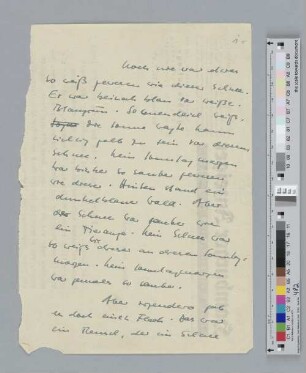 Noch nie war etwas
so weiß gewesen wie dieser Schnee.
Er war beinah blau vor Weiße.
Blaugrün. So weiß.
Die Sonne wagte kaum
gelb zu sein vor diesem
Schnee. Kein Sonntagmorgen
war bisher so sauber gewesen
wie dieser. Hinten stand ein
dunkelblauer Wald. Aber
der Schnee war sauber wie
ein Tierauge. Kein Schnee war
so weiß wie dieser an diesem Sonntag-
morgen. Kein Sonntagmorgen
war jemals so sauber.
Aber irgendwo gab
es doch einen Fleck. Das war
ein Mensch, der im Schnee